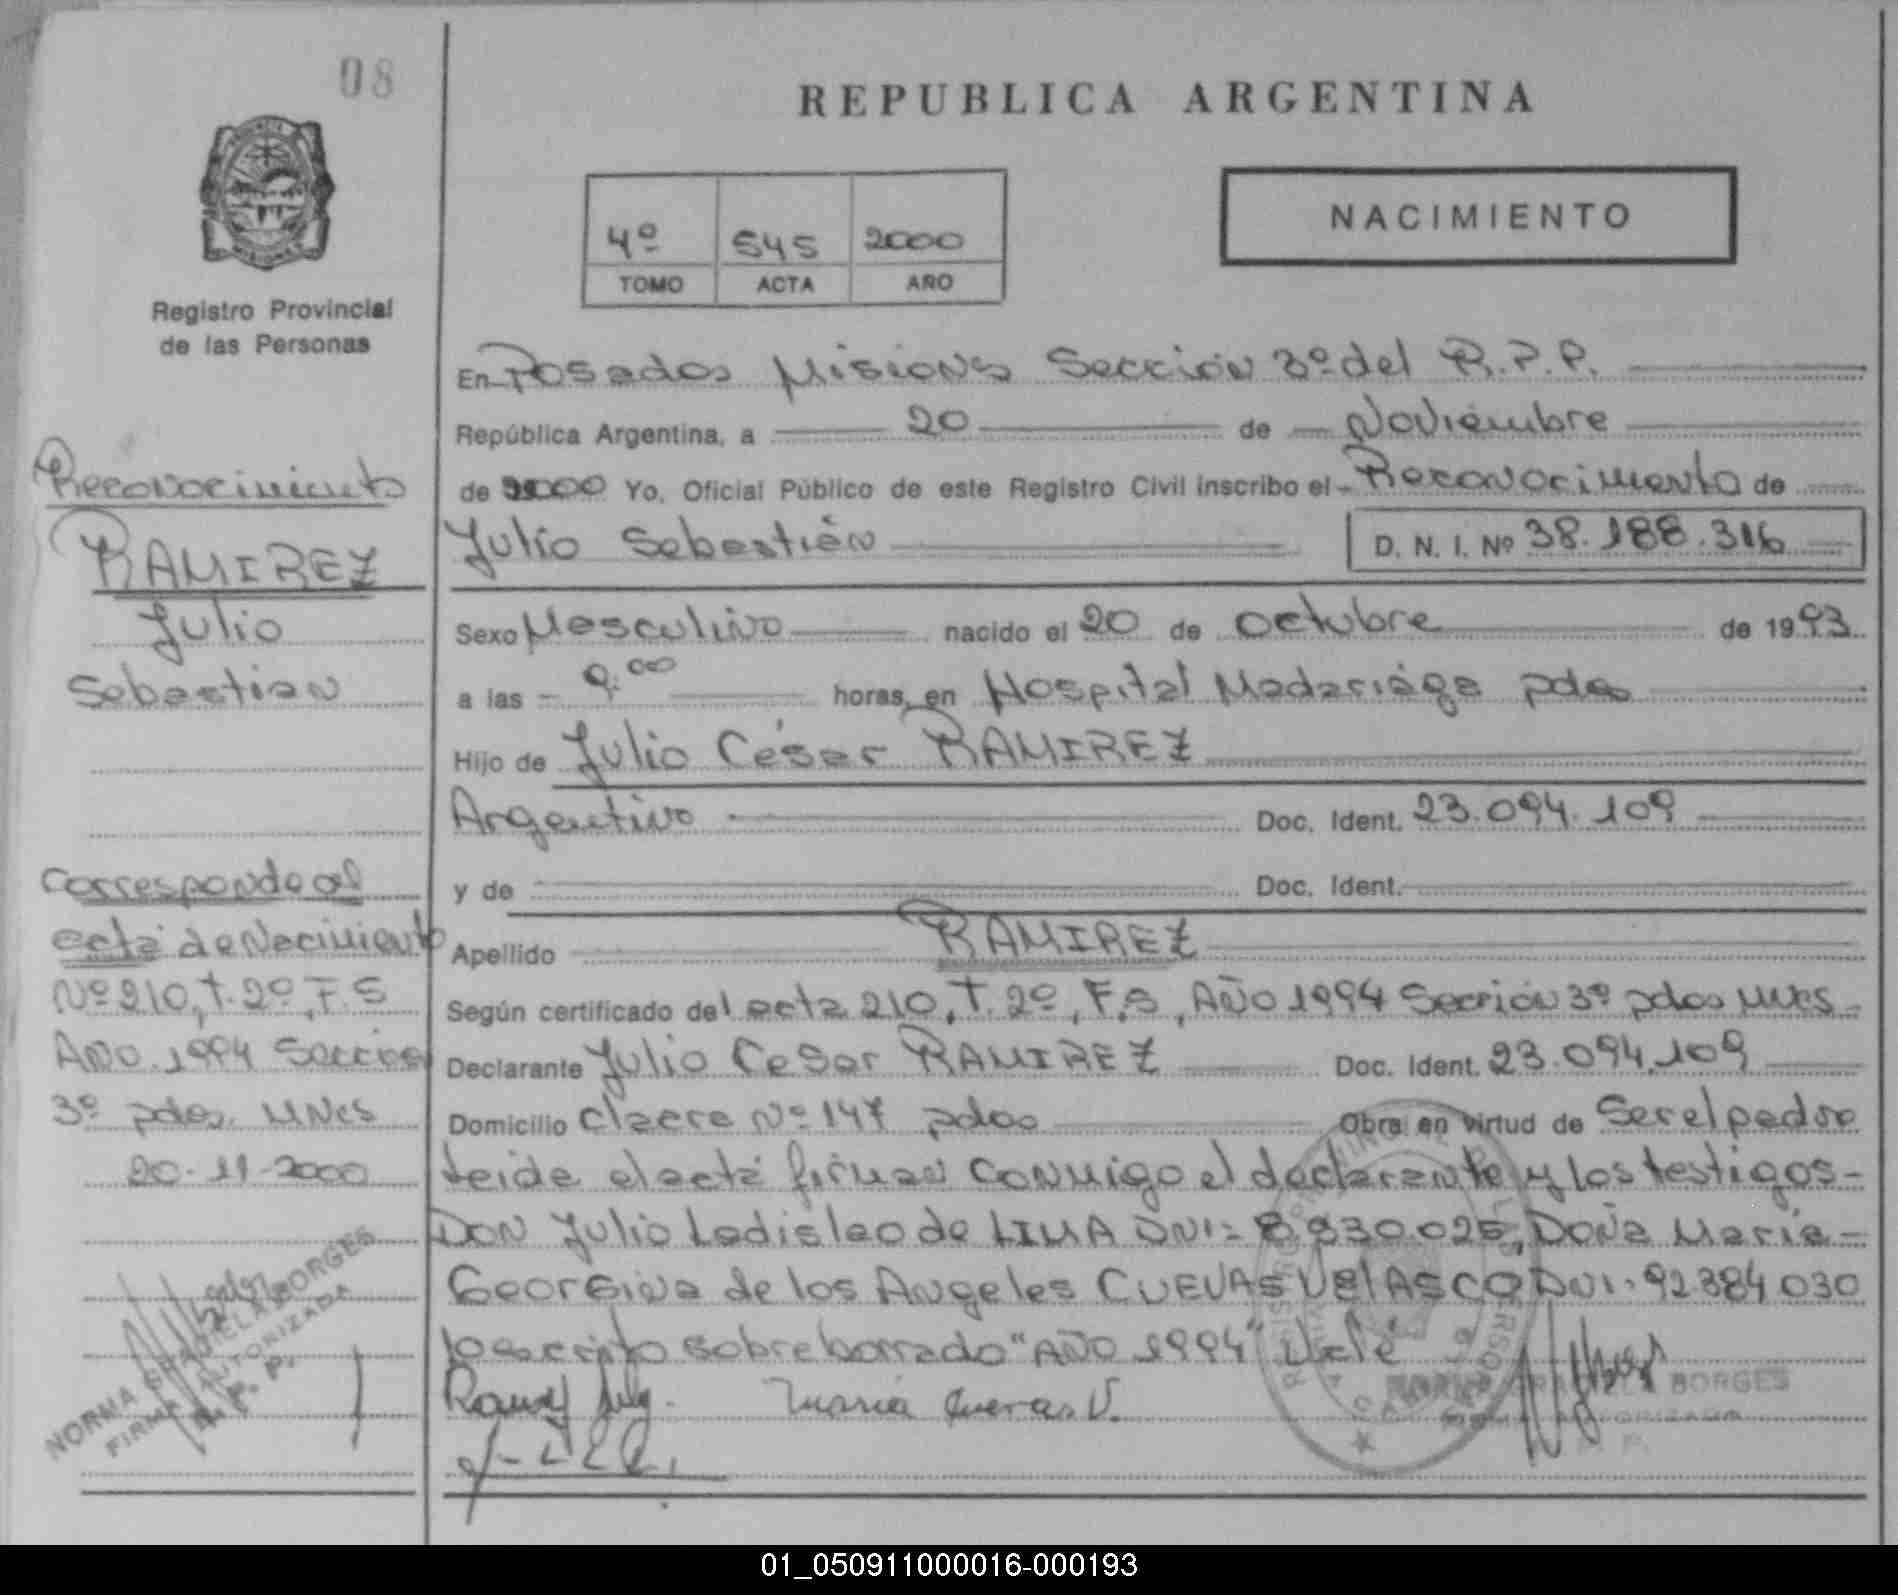 08
REPUBLICA ARGENTINA
4º 545 2000
TOMO ACTA AÑO
NACIMIENTO
Registro Provincial
de las Personas
En Posadas Misiones Sección 3º del R.P.P.
República Argentina, a 20 de Noviembre
de 2000 Yo, Oficial Público de este Registro Civil inscribo el Reconocimiento de
Julio Sebastián D. N. I. Nº 38.188.316
Sexo Masculino nacido el 20 de octubre de 1993
a las 9:00 horas, en Hospital Madariaga pdas
Hijo de Julio César RAMIREZ
Argentino Doc. Ident. 23.094.109
y de Doc. Ident.
Apellido RAMIREZ
Según certificado del acta 210, T. 2º, F, 5, Año 1994 Sección 3º pdas Mnes
Declarante Julio Cesar RAMIREZ Doc. Ident. 23.094.109
Domicilio Nº 147 pdas Obra en virtud de Ser el padre
leída el acta firman conmigo el declarante y los testigos-
DON Julio Ladislao de LIMA DNI: 8.830.025, Doña María
Georgina de los Angeles CUEVAS VELASCO DNI: 92384030
lo escrito sobre borrado "AÑO 1994" Vale
María Cuevas V.
Reconocimiento
RAMIREZ
Julio
Sebastian
Corresponde al
acta de Nacimiento
Nº 210, T. 2º, F. 5
Año 1994 Sección
3º pdas. Mnes
20-11-2000
NORMA GRACIELA BORGES
FIRMA AUTORIZADA
R. P. P.
NORMA GRACIELA BORGES
FIRMA AUTORIZADA
01_050911000016-000193